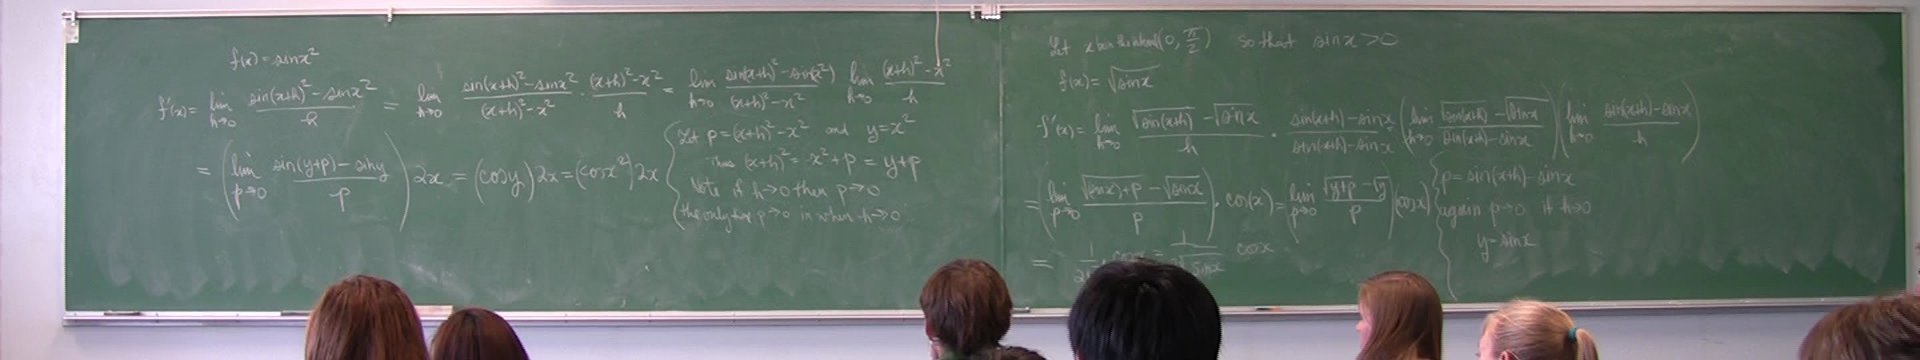 f(x) = sin x²
f'(x) = lim h→0 (sin(x+h)² − sin x²)/h = lim h→0 (sin(x+h)² − sin x²)/((x+h)² − x²) · ((x+h)² − x²)/h = lim h→0 (sin(x+h)² − sin(x²))/((x+h)² − x²) lim h→0 ((x+h)² − x²)/h
= (lim p→0 (sin(y+p) − sin y)/p) 2x = (cos y) 2x = (cos x²) 2x
Let p = (x+h)² − x² and y = x²
Thus (x+h)² = x² + p = y+p
Note if h→0 then p→0
the only way p→0 is when h→0
Let x be in the interval (0, π/2) so that sin x > 0
f(x) = √sin x
f'(x) = lim h→0 (√sin(x+h) − √sin x)/h · (sin(x+h) − sin x)/(sin(x+h) − sin x) = (lim h→0 (√sin(x+h) − √sin x)/(sin(x+h) − sin x)) (lim h→0 (sin(x+h) − sin x)/h)
= (lim p→0 (√(sin x)+p − √sin x)/p) · cos(x) = (lim p→0 (√y+p − √y)/p) (cos x)
p = sin(x+h) − sin x
again p→0 if h→0
y = sin x
= 1/2 cos x = 1/(2√sin x) cos x